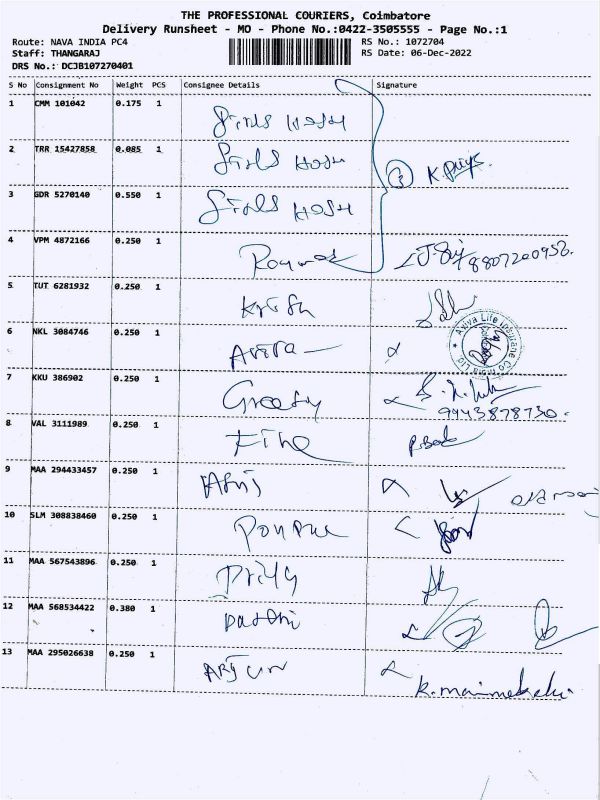 THE PROFESSIONAL COURIERS, Coimbatore
Delivery Runsheet - MO - Phone No.:0422-3505555 - Page No.:1
Route: NAVA INDIA PC4 RS No.: 1072704
Staff: THANGARAJ RS Date: 06-Dec-2022
DRS No.: DCJB107270401
S No Consignment No Weight PCS Consignee Details Signature
1 CMM 101042 0.175 1 Girls Hosh
2 TRR 15427858 0.085 1 Girls Hosh
3 K.Priya.
3 GDR 5270140 0.550 1 Girls Hosh
4 VPM 4872166 0.250 1 8807200958.
5 TUT 6281932 0.250 1 Krish
Aviva Life Insurance Co India Ltd
6 NKL 3084746 0.250 1 Aviva
7 KKU 386902 0.250 1
9443878730.
8 VAL 3111989 0.250 1 Fine
9 MAA 294433457 0.250 1
10 SLM 308838460 0.250 1
11 MAA 567543896 0.250 1 Priya
12 MAA 568534422 0.380 1
13 MAA 295026638 0.250 1 Arjun
K.manimekalai